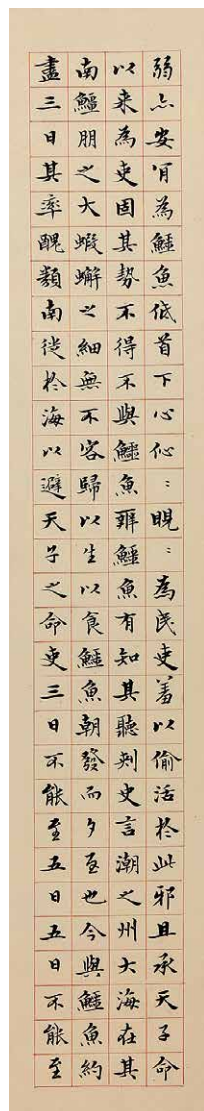 弱亦安肎為鱷魚低首下心伈::睍::為民吏羞以偷活於此邪且承天子命
以来為吏固其勢不得不與鱷魚辨鱷魚有知其聽刺史言潮之州大海在其
南鱷朋之大蝦蠏之細無不容歸以生以食鱷魚朝發而夕至也今與鱷魚約
盡三日其率醜類南徙於海以避天子之命吏三日不能至五日五日不能至